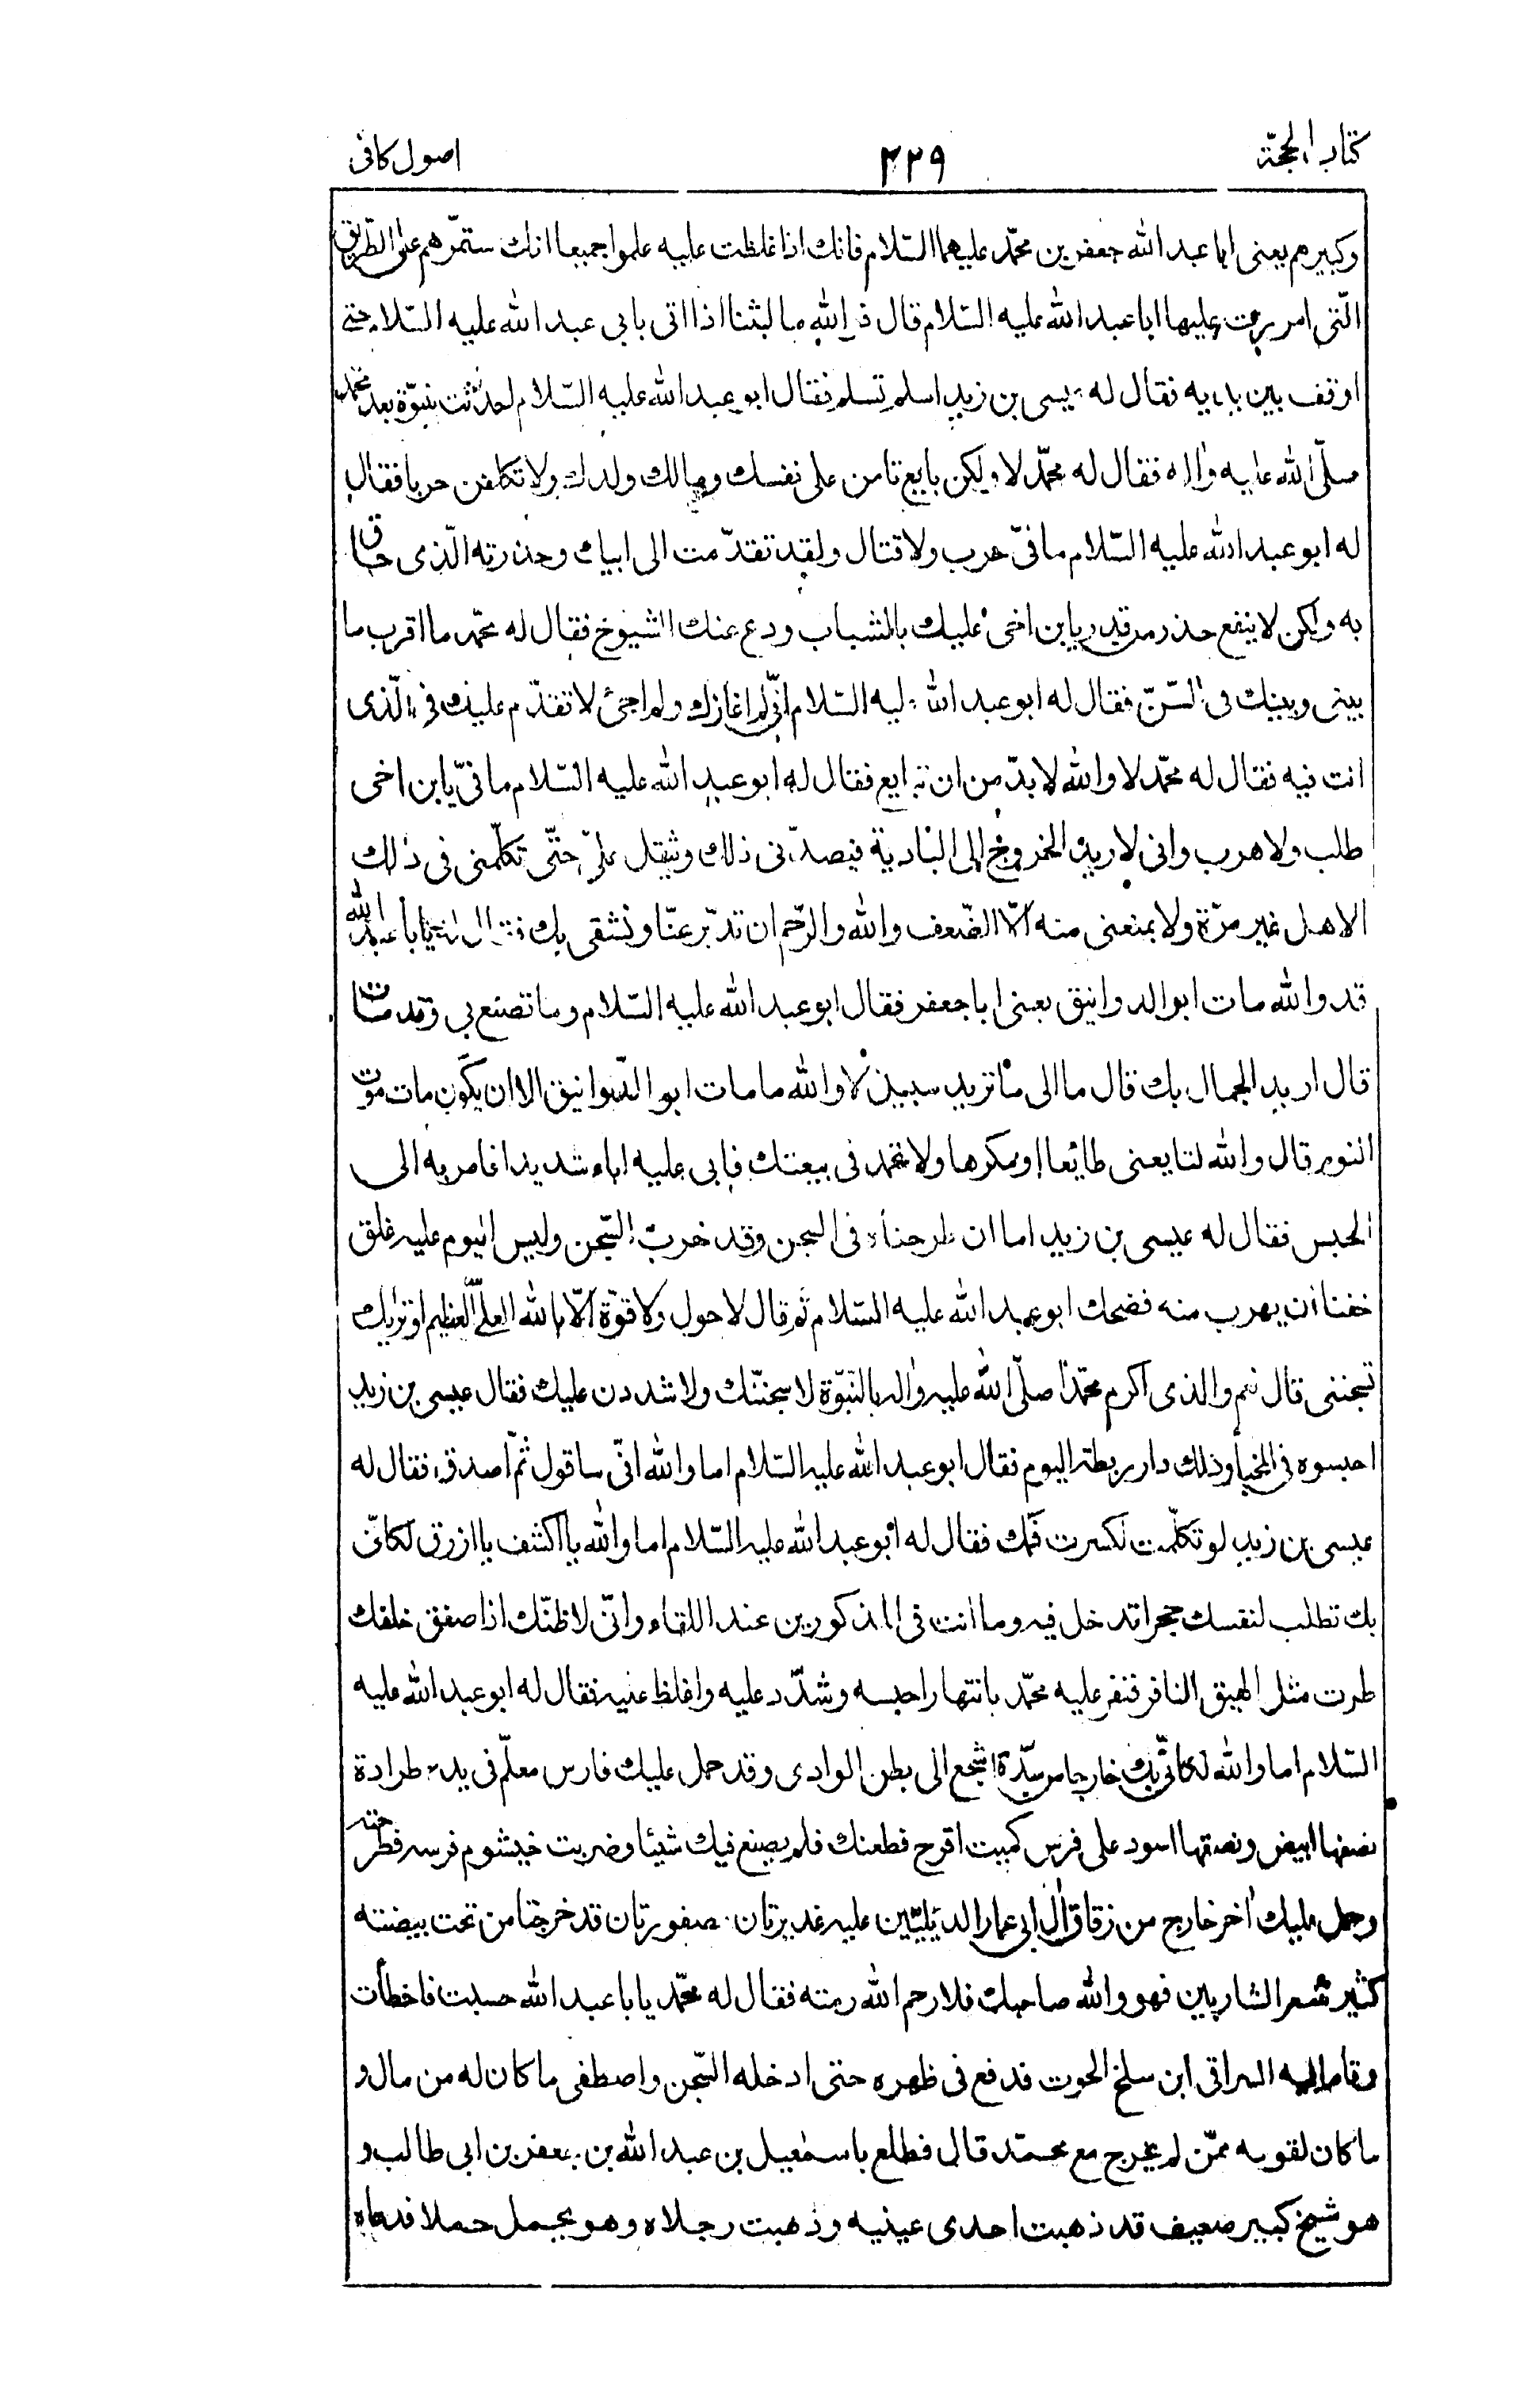 كتاب الحجّة
٢٢٩
اصول كافى
وكبيرهم يعنى ابا عبد الله جعفر بن محمّد عليهما السّلام فانك اذا غلظت عليه علموا جميعا انك ستمرّهم على الطّريق
الّتى امررت عليها ابا عبد الله عليه السّلام قال فو الله ما لبثنا اذا اتى بابى عبد الله عليه السّلام حتى
اوقف بين يديه فقال له عيسى بن زيد اسلم تسلم فقال ابو عبد الله عليه السّلام احدثت نبوّة بعد محمّد
صلّى الله عليه واله فقال له محمّد لا ولكن بايع تامن على نفسك ومالك وولدك ولا تكلفن حربا فقال
له ابو عبد الله عليه السّلام ما فىّ حرب ولا قتال ولقد تقدّمت الى ابيك وحذرته الّذى حاق
به ولكن لا ينفع حذر من قدر يابن اخى عليك بالشباب ودع عنك الشيوخ فقال له محمّد ما اقرب ما
بينى وبينك فى السّنّ فقال له ابو عبد الله عليه السّلام انّى لم اعازك ولم اجئ لاتقدّم عليك فى الّذى
انت فيه فقال له محمّد لا والله لا بدّ من ان تبايع فقال له ابو عبد الله عليه السّلام ما فىّ يابن اخى
طلب ولا هرب وانى لاريد الخروج الى البادية فيصدّنى ذلك ويثقل علىّ حتّى تكلّمنى فى ذلك
الاهل غير مرّة ولا يمنعنى منه الّا الضّعف والله والرّحم ان تدبّر عنّا ونشقى بك فقال له يا ابا عبد الله
قد والله مات ابو الدوانيق يعنى ابا جعفر فقال ابو عبد الله عليه السّلام وما تصنع بى وقد مات
قال اريد الجمال بك قال ما الى ما تريد سبيل لا والله ما مات ابو الدّوانيق الا ان يكون مات موت
النوم قال والله لتبايعنى طائعا او مكرها ولا تحمد فى بيعتك فابى عليه اباء شديدا فامر به الى
الحبس فقال له عيسى بن زيد اما ان طرحناه فى السجن وقد خرب السّجن وليس اليوم عليه غلق
خفنا ان يهرب منه فضحك ابو عبد الله عليه السّلام ثم قال لا حول ولا قوّة الّا بالله العلىّ العظيم او تراك
تسجننى قال نعم والذى اكرم محمّدا صلّى الله عليه واله بالنّبوّة لاسجننّك ولاشددن عليك فقال عيسى بن زيد
احبسوه فى المخبأ وذلك دار ريطة اليوم فقال ابو عبد الله عليه السّلام اما والله انّى ساقول ثمّ اصدق فقال له
عيسى بن زيد لو تكلّمت لكسرت فمك فقال له ابو عبد الله عليه السّلام اما والله يا اكشف يا ازرق لكانّى
بك تطلب لنفسك جحرا تدخل فيه وما انت فى المذكورين عند اللقاء وانّى لاظنّك اذا صفق خلفك
طرت مثل الهيق النافر فنفر عليه محمّد بانتهار احبسه وشدّد عليه واغلظ عليه فقال له ابو عبد الله عليه
السّلام اما والله لكانّى بك خارجا من سدّة اشجع الى بطن الوادى وقد حمل عليك فارس معلّم فى يده طرادة
نصفها ابيض ونصفها اسود على فرس كميت اقرح فطعنك فلم يصنع فيك شيئا وضربت خيشوم فرسه فطرحته
وحمل عليك اخر خارج من زقاق ال ابى عمار الدئليّين عليه غديرتان مضفورتان قد خرجتا من تحت بيضته
كثير شعر الشاربين فهو والله صاحبك فلا رحم الله رمته فقال له محمّد يا با عبد الله حسبت فاخطأت
وقام اليه السراقى ابن سلخ الحوت فدفع فى ظهره حتى ادخله السّجن واصطفى ما كان له من مال و
ما كان لقومه ممّن لم يخرج مع محمّد قال فطلع باسمعيل بن عبد الله بن جعفر بن ابى طالب و
هو شيخ كبير ضعيف قد ذهبت احدى عينيه وذهبت رجلاه وهو يحمل حملا فدعاه